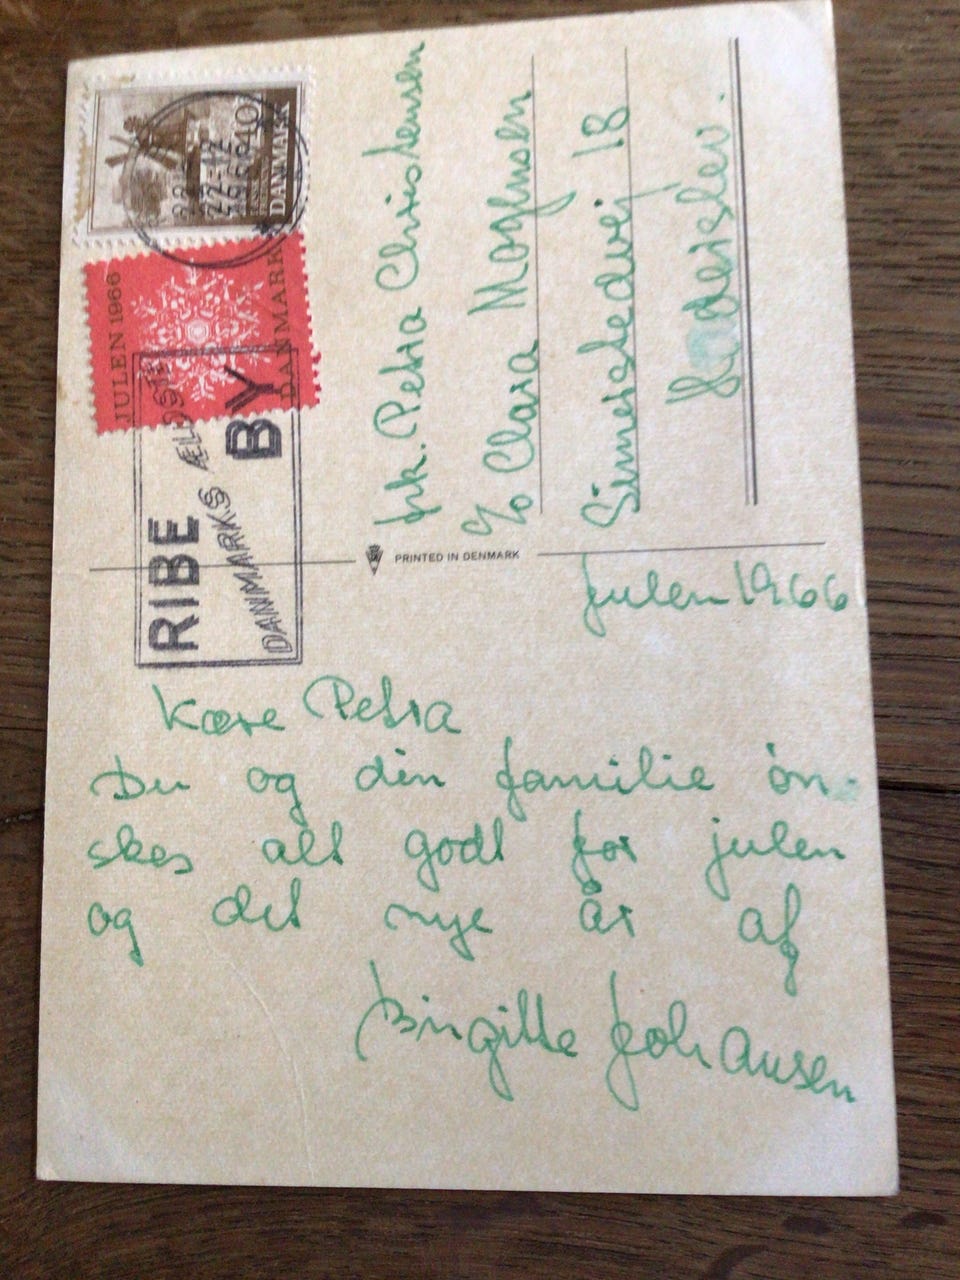 Julen 1966
Kære Petra
Du og din familie øn-
skes alt godt for julen
og det nye år af
Birgitte Johansen
frk. Petra Christensen
c/o Clara Moghsen
Simmerstedvej 18
Haderslev.
PRINTED IN DENMARK
RIBE
DANMARKS ÆLDSTE
BY
JULEN 1966
DANMARK
40
DANMARK